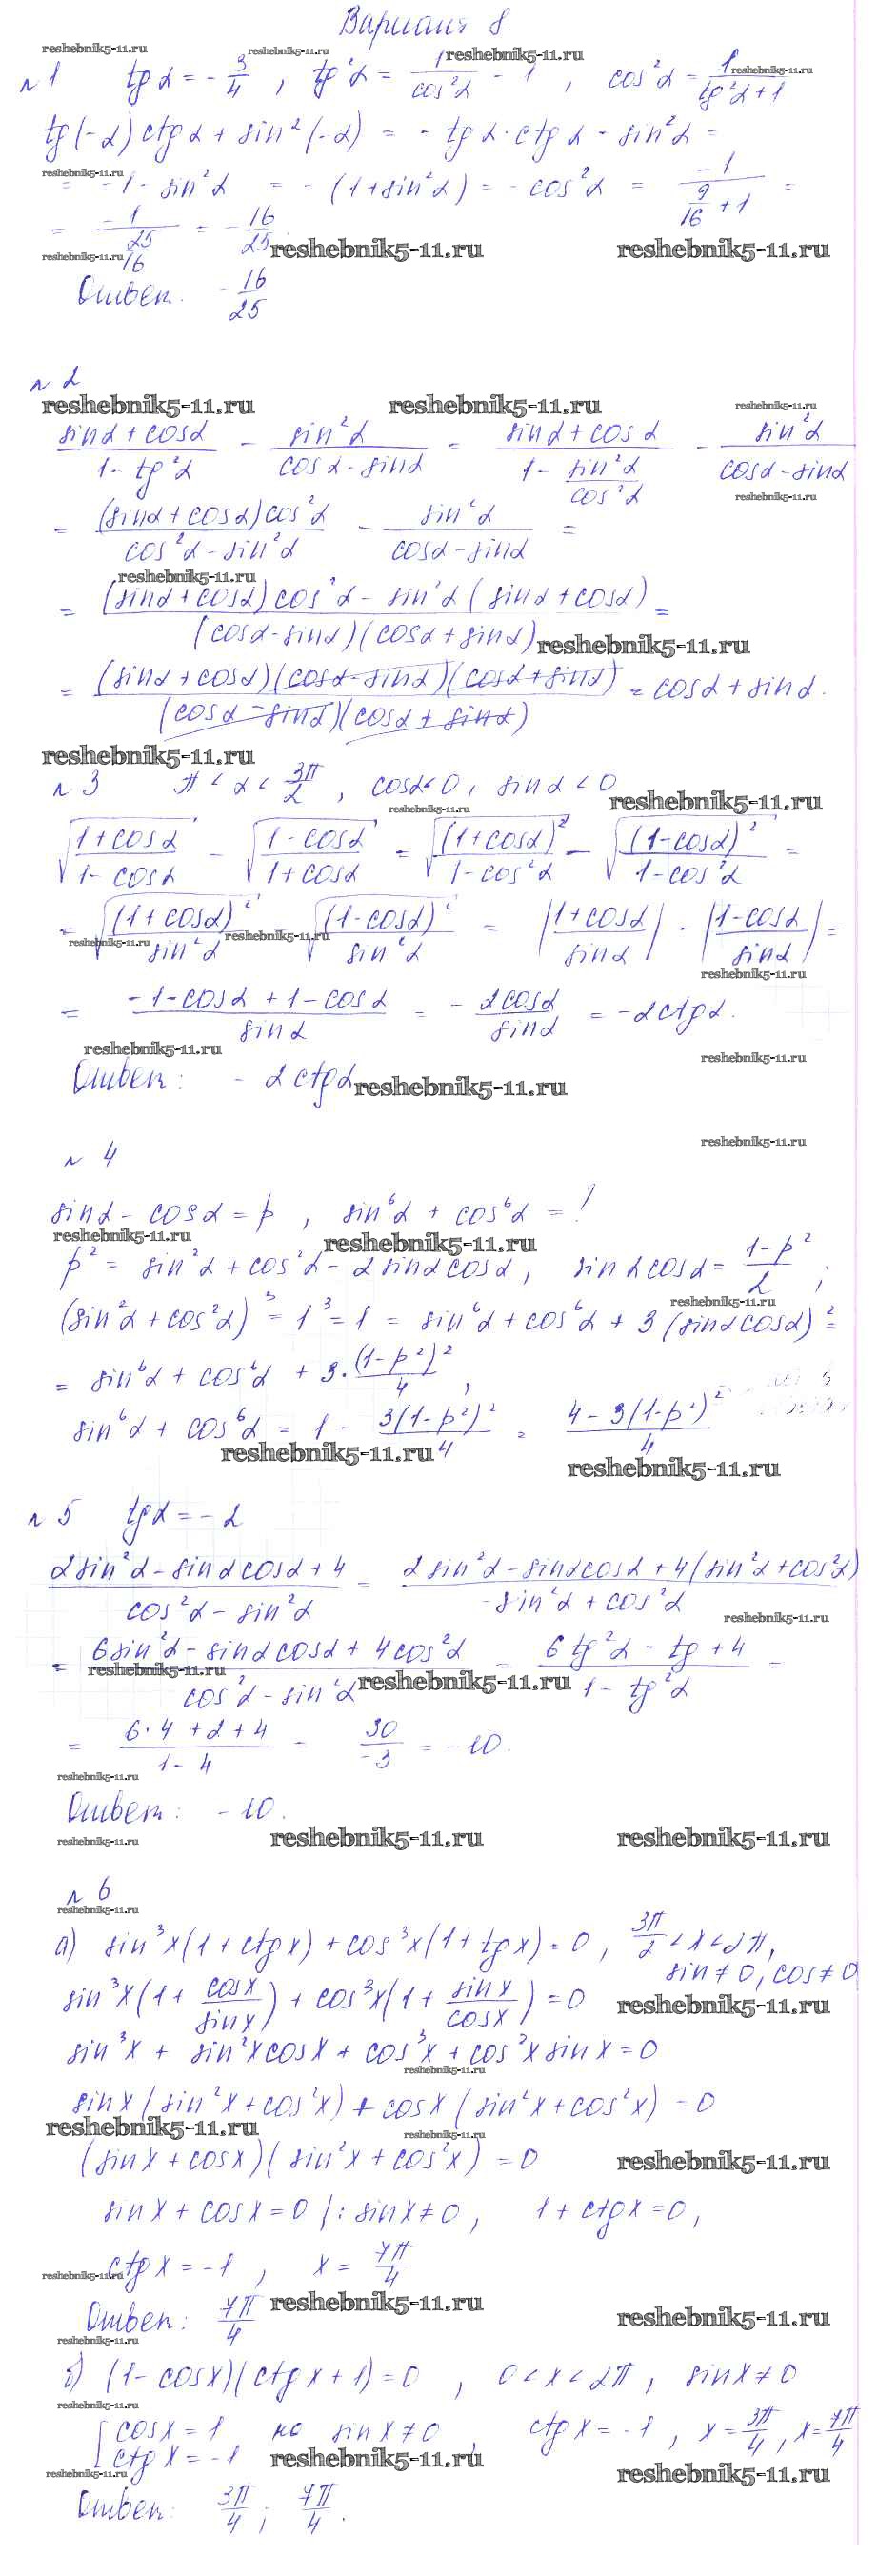 Вариант 8.
reshebnik5-11.ru reshebnik5-11.ru reshebnik5-11.ru reshebnik5-11.ru
№1 tg α = - 3/4 , tg²α = 1/cos²α - 1 , cos²α = 1/(tg²α+1)
tg(-α)ctg α + sin²(-α) = - tg α · ctg α - sin²α =
reshebnik5-11.ru
= -1 - sin²α = -(1+sin²α) = -cos²α = -1/(9/16 + 1) =
= -1/(25/16) = -16/25.
reshebnik5-11.ru reshebnik5-11.ru reshebnik5-11.ru
Ответ. -16/25
№2
reshebnik5-11.ru reshebnik5-11.ru reshebnik5-11.ru
(sinα+cosα)/(1-tg²α) - sin²α/(cosα-sinα) = (sinα+cosα)/(1-sin²α/cos²α) - sin²α/(cosα-sinα)
reshebnik5-11.ru
= (sinα+cosα)cos²α/(cos²α-sin²α) - sin²α/(cosα-sinα) =
reshebnik5-11.ru
= ((sinα+cosα)cos²α - sin²α(sinα+cosα))/((cosα-sinα)(cosα+sinα)) =
reshebnik5-11.ru
= (sinα+cosα)(cosα-sinα)(cosα+sinα)/((cosα-sinα)(cosα+sinα)) = cosα+sinα.
reshebnik5-11.ru
№3 π < α < 3π/2 , cosα<0, sinα<0
reshebnik5-11.ru reshebnik5-11.ru
√((1+cosα)/(1-cosα)) - √((1-cosα)/(1+cosα)) = √((1+cosα)²/(1-cos²α)) - √((1-cosα)²/(1-cos²α)) =
= √((1+cosα)²/sin²α) √((1-cosα)²/sin²α) = |(1+cosα)/sinα| - |(1-cosα)/sinα| =
reshebnik5-11.ru reshebnik5-11.ru reshebnik5-11.ru
= (-1-cosα+1-cosα)/sinα = - 2cosα/sinα = -2ctgα.
reshebnik5-11.ru reshebnik5-11.ru
Ответ: - 2ctgα
reshebnik5-11.ru
reshebnik5-11.ru
№ 4
sinα - cosα = p , sin⁶α + cos⁶α = ?
reshebnik5-11.ru reshebnik5-11.ru
p² = sin²α + cos²α - 2sinαcosα, sinαcosα = (1-p²)/2 ;
reshebnik5-11.ru
(sin²α+cos²α)³ = 1³ = 1 = sin⁶α + cos⁶α + 3(sinαcosα)² =
= sin⁶α + cos⁶α + 3·(1-p²)²/4 ,
sin⁶α + cos⁶α = 1 - 3(1-p²)²/4 = (4-3(1-p²)²)/4
reshebnik5-11.ru reshebnik5-11.ru
№5 tgα = -2
(2sin²α - sinαcosα + 4)/(cos²α - sin²α) = (2sin²α - sinαcosα + 4(sin²α+cos²α))/(-sin²α + cos²α)
reshebnik5-11.ru
= (6sin²α - sinαcosα + 4cos²α)/(cos²α - sin²α) = (6tg²α - tg + 4)/(1 - tg²α) =
reshebnik5-11.ru reshebnik5-11.ru
= (6·4+2+4)/(1-4) = 30/-3 = -10.
reshebnik5-11.ru
Ответ: -10.
reshebnik5-11.ru reshebnik5-11.ru reshebnik5-11.ru
№6
reshebnik5-11.ru
а) sin³x(1+ctgx) + cos³x(1+tgx) = 0, 3π/2 < x < 2π,
sin≠0, cos≠0
sin³x(1+cosx/sinx) + cos³x(1+sinx/cosx) = 0
reshebnik5-11.ru
sin³x + sin²xcosx + cos³x + cos²xsinx = 0
reshebnik5-11.ru
sinx(sin²x+cos²x) + cosx(sin²x+cos²x) = 0
reshebnik5-11.ru reshebnik5-11.ru
(sinx+cosx)(sin²x+cos²x) = 0
reshebnik5-11.ru
sinx+cosx=0 |: sinx≠0, 1+ctgx=0,
ctgx=-1, x = 7π/4
reshebnik5-11.ru
Ответ: 7π/4
reshebnik5-11.ru reshebnik5-11.ru
reshebnik5-11.ru
б) (1-cosx)(ctgx+1)=0 , 0<x<2π, sinx≠0
reshebnik5-11.ru
[cosx=1 но sinx≠0 ctgx=-1, x=3π/4, x=7π/4
ctgx=-1
reshebnik5-11.ru reshebnik5-11.ru reshebnik5-11.ru
Ответ: 3π/4 ; 7π/4.